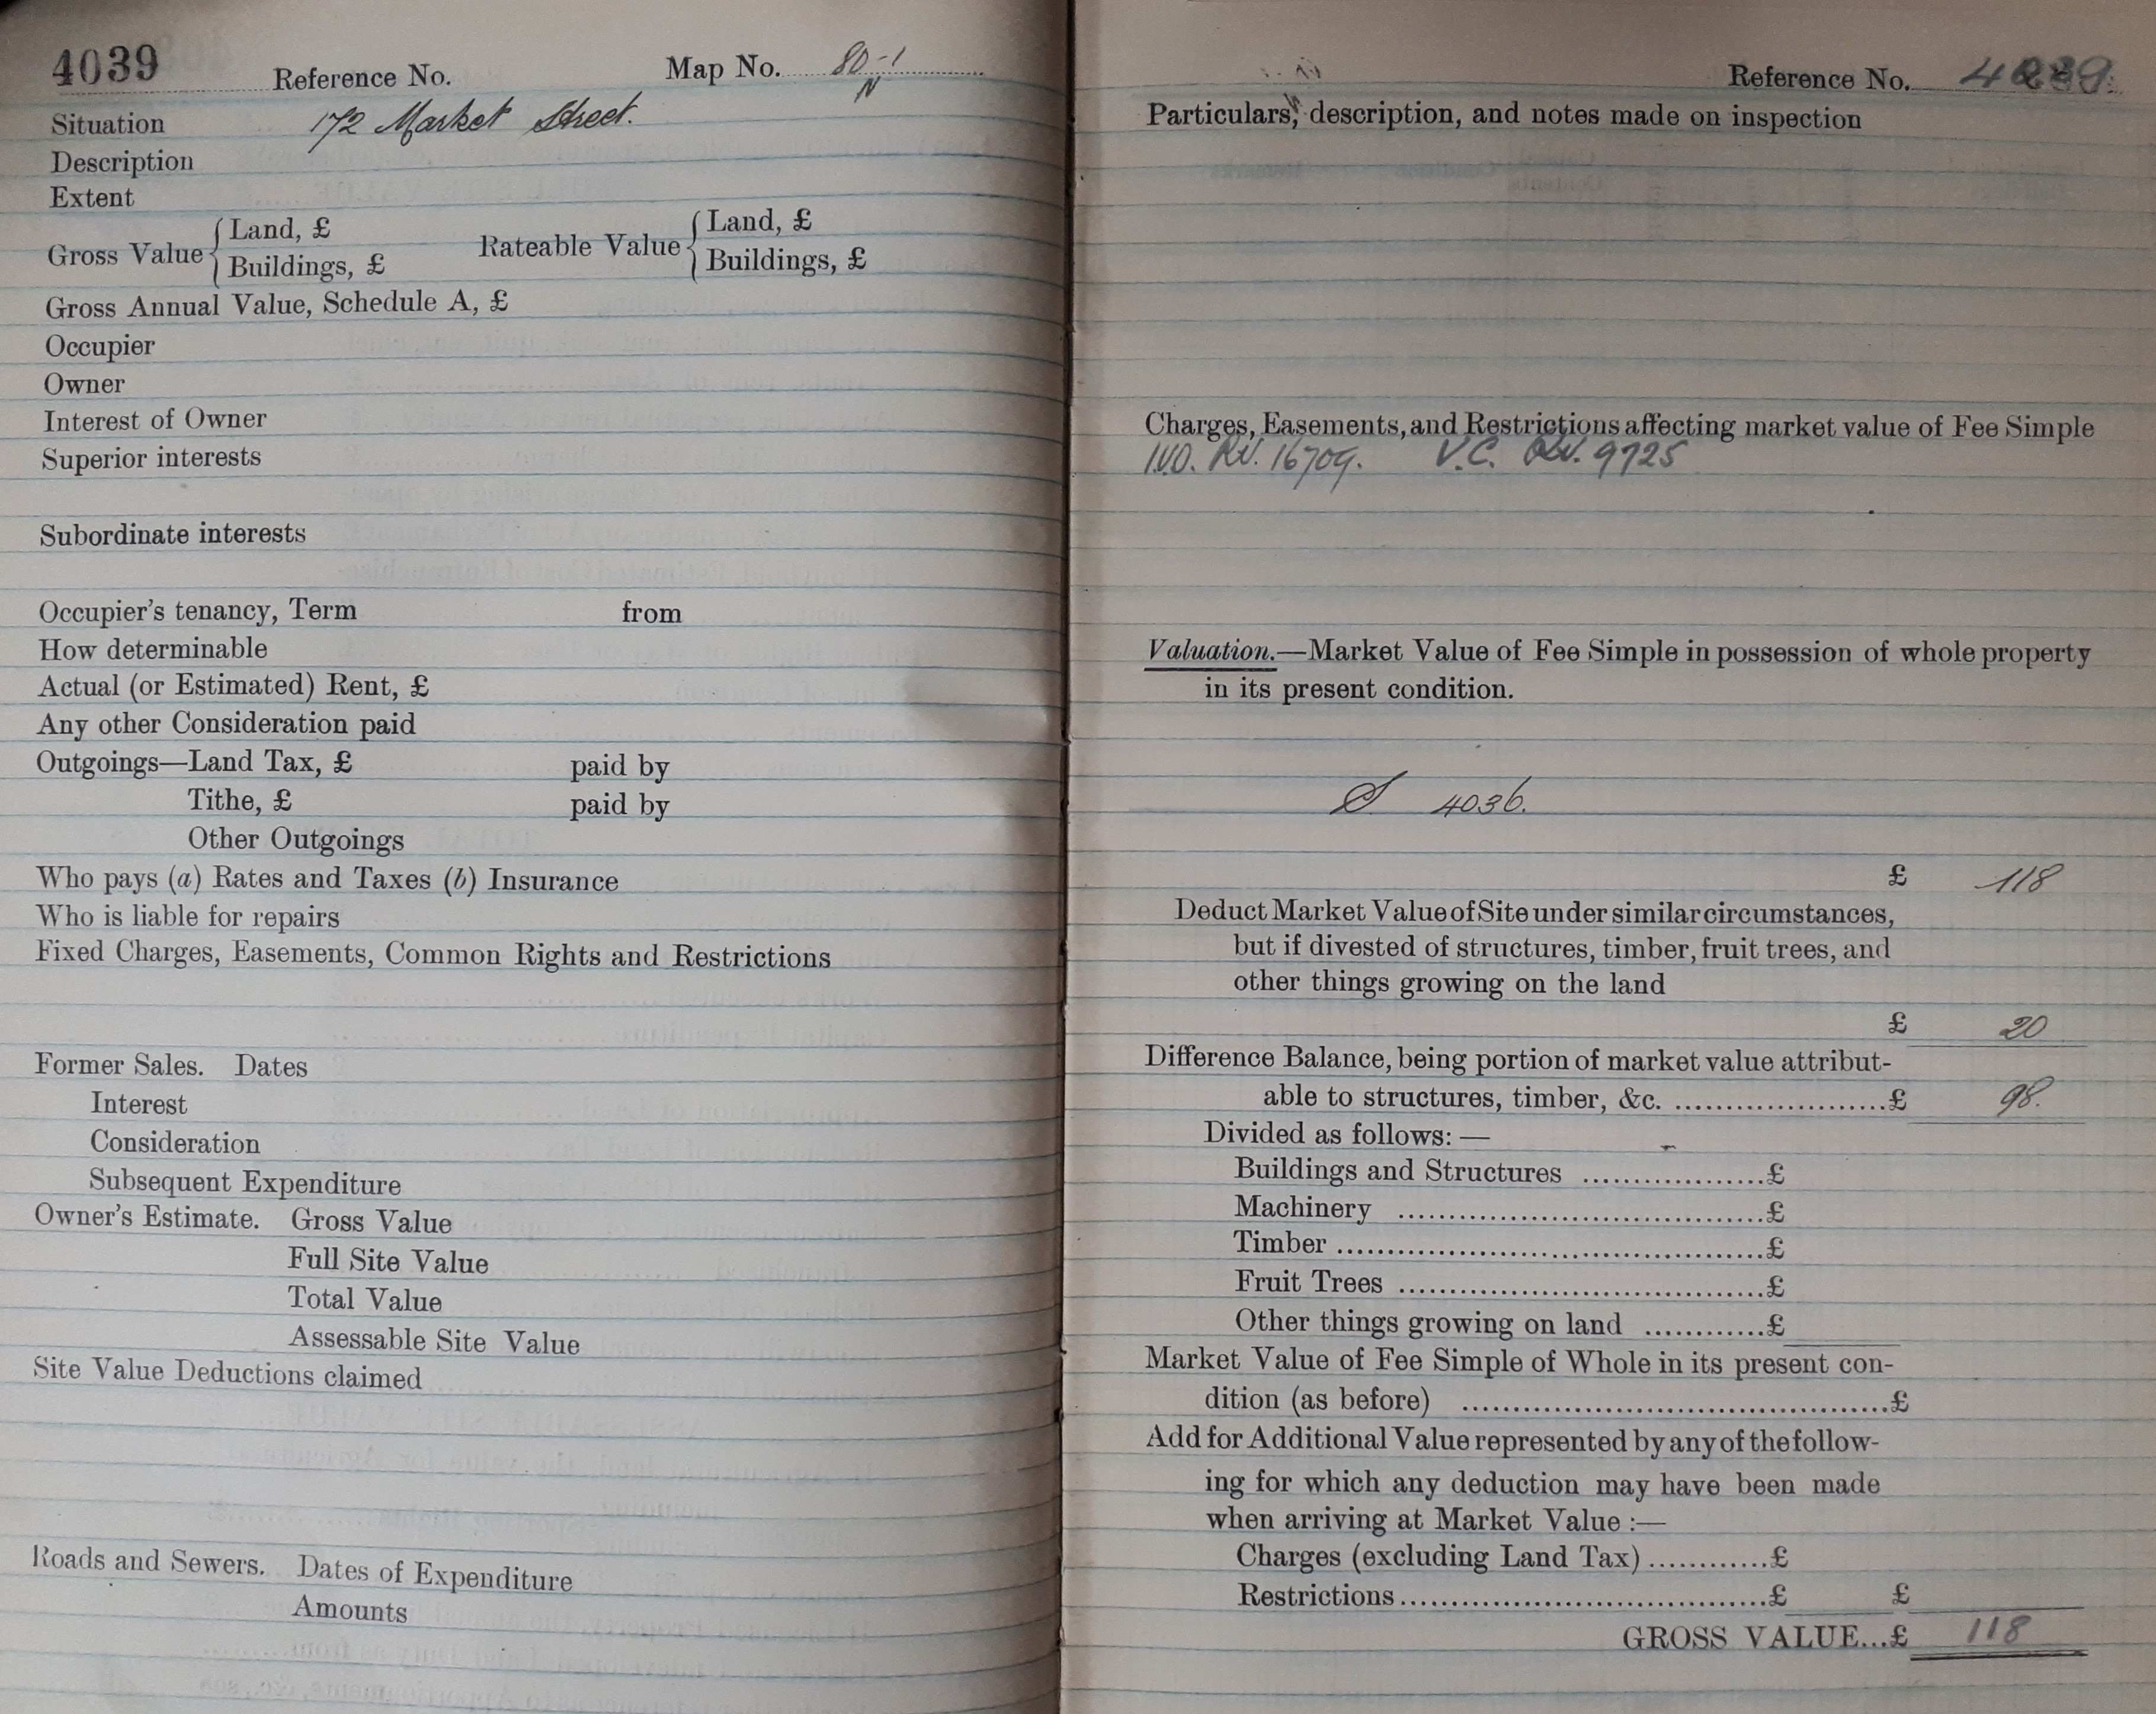 4039 Reference No. Map No. 80-1
N
Situation 172 Market Street.
Description
Extent
Gross Value { Land, £ Rateable Value { Land, £
Buildings, £ Buildings, £
Gross Annual Value, Schedule A, £
Occupier
Owner
Interest of Owner
Superior interests
Subordinate interests
Occupier's tenancy, Term from
How determinable
Actual (or Estimated) Rent, £
Any other Consideration paid
Outgoings—Land Tax, £ paid by
Tithe, £ paid by
Other Outgoings
Who pays (a) Rates and Taxes (b) Insurance
Who is liable for repairs
Fixed Charges, Easements, Common Rights and Restrictions
Former Sales. Dates
Interest
Consideration
Subsequent Expenditure
Owner's Estimate. Gross Value
Full Site Value
Total Value
Assessable Site Value
Site Value Deductions claimed
Roads and Sewers. Dates of Expenditure
Amounts
Reference No. 4039
Particulars, description, and notes made on inspection
Charges, Easements, and Restrictions affecting market value of Fee Simple
16709. V.C. 9725
Valuation.—Market Value of Fee Simple in possession of whole property
in its present condition.
S 4036.
£ 118
Deduct Market Value of Site under similar circumstances,
but if divested of structures, timber, fruit trees, and
other things growing on the land
£ 20
Difference Balance, being portion of market value attribut-
able to structures, timber, &c. ....................£ 98.
Divided as follows: —
Buildings and Structures ..................£
Machinery ....................................£
Timber ..........................................£
Fruit Trees ....................................£
Other things growing on land ............£
Market Value of Fee Simple of Whole in its present con-
dition (as before) ..........................................£
Add for Additional Value represented by any of the follow-
ing for which any deduction may have been made
when arriving at Market Value :—
Charges (excluding Land Tax) ............£
Restrictions ....................................£ £
GROSS VALUE...£ 118